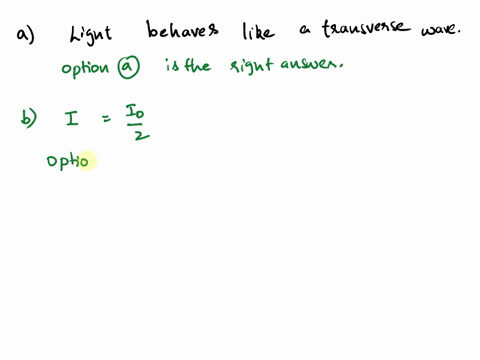 a) Light behaves like a transverse wave.
option a is the right answer.
b) I = I0/2
optio